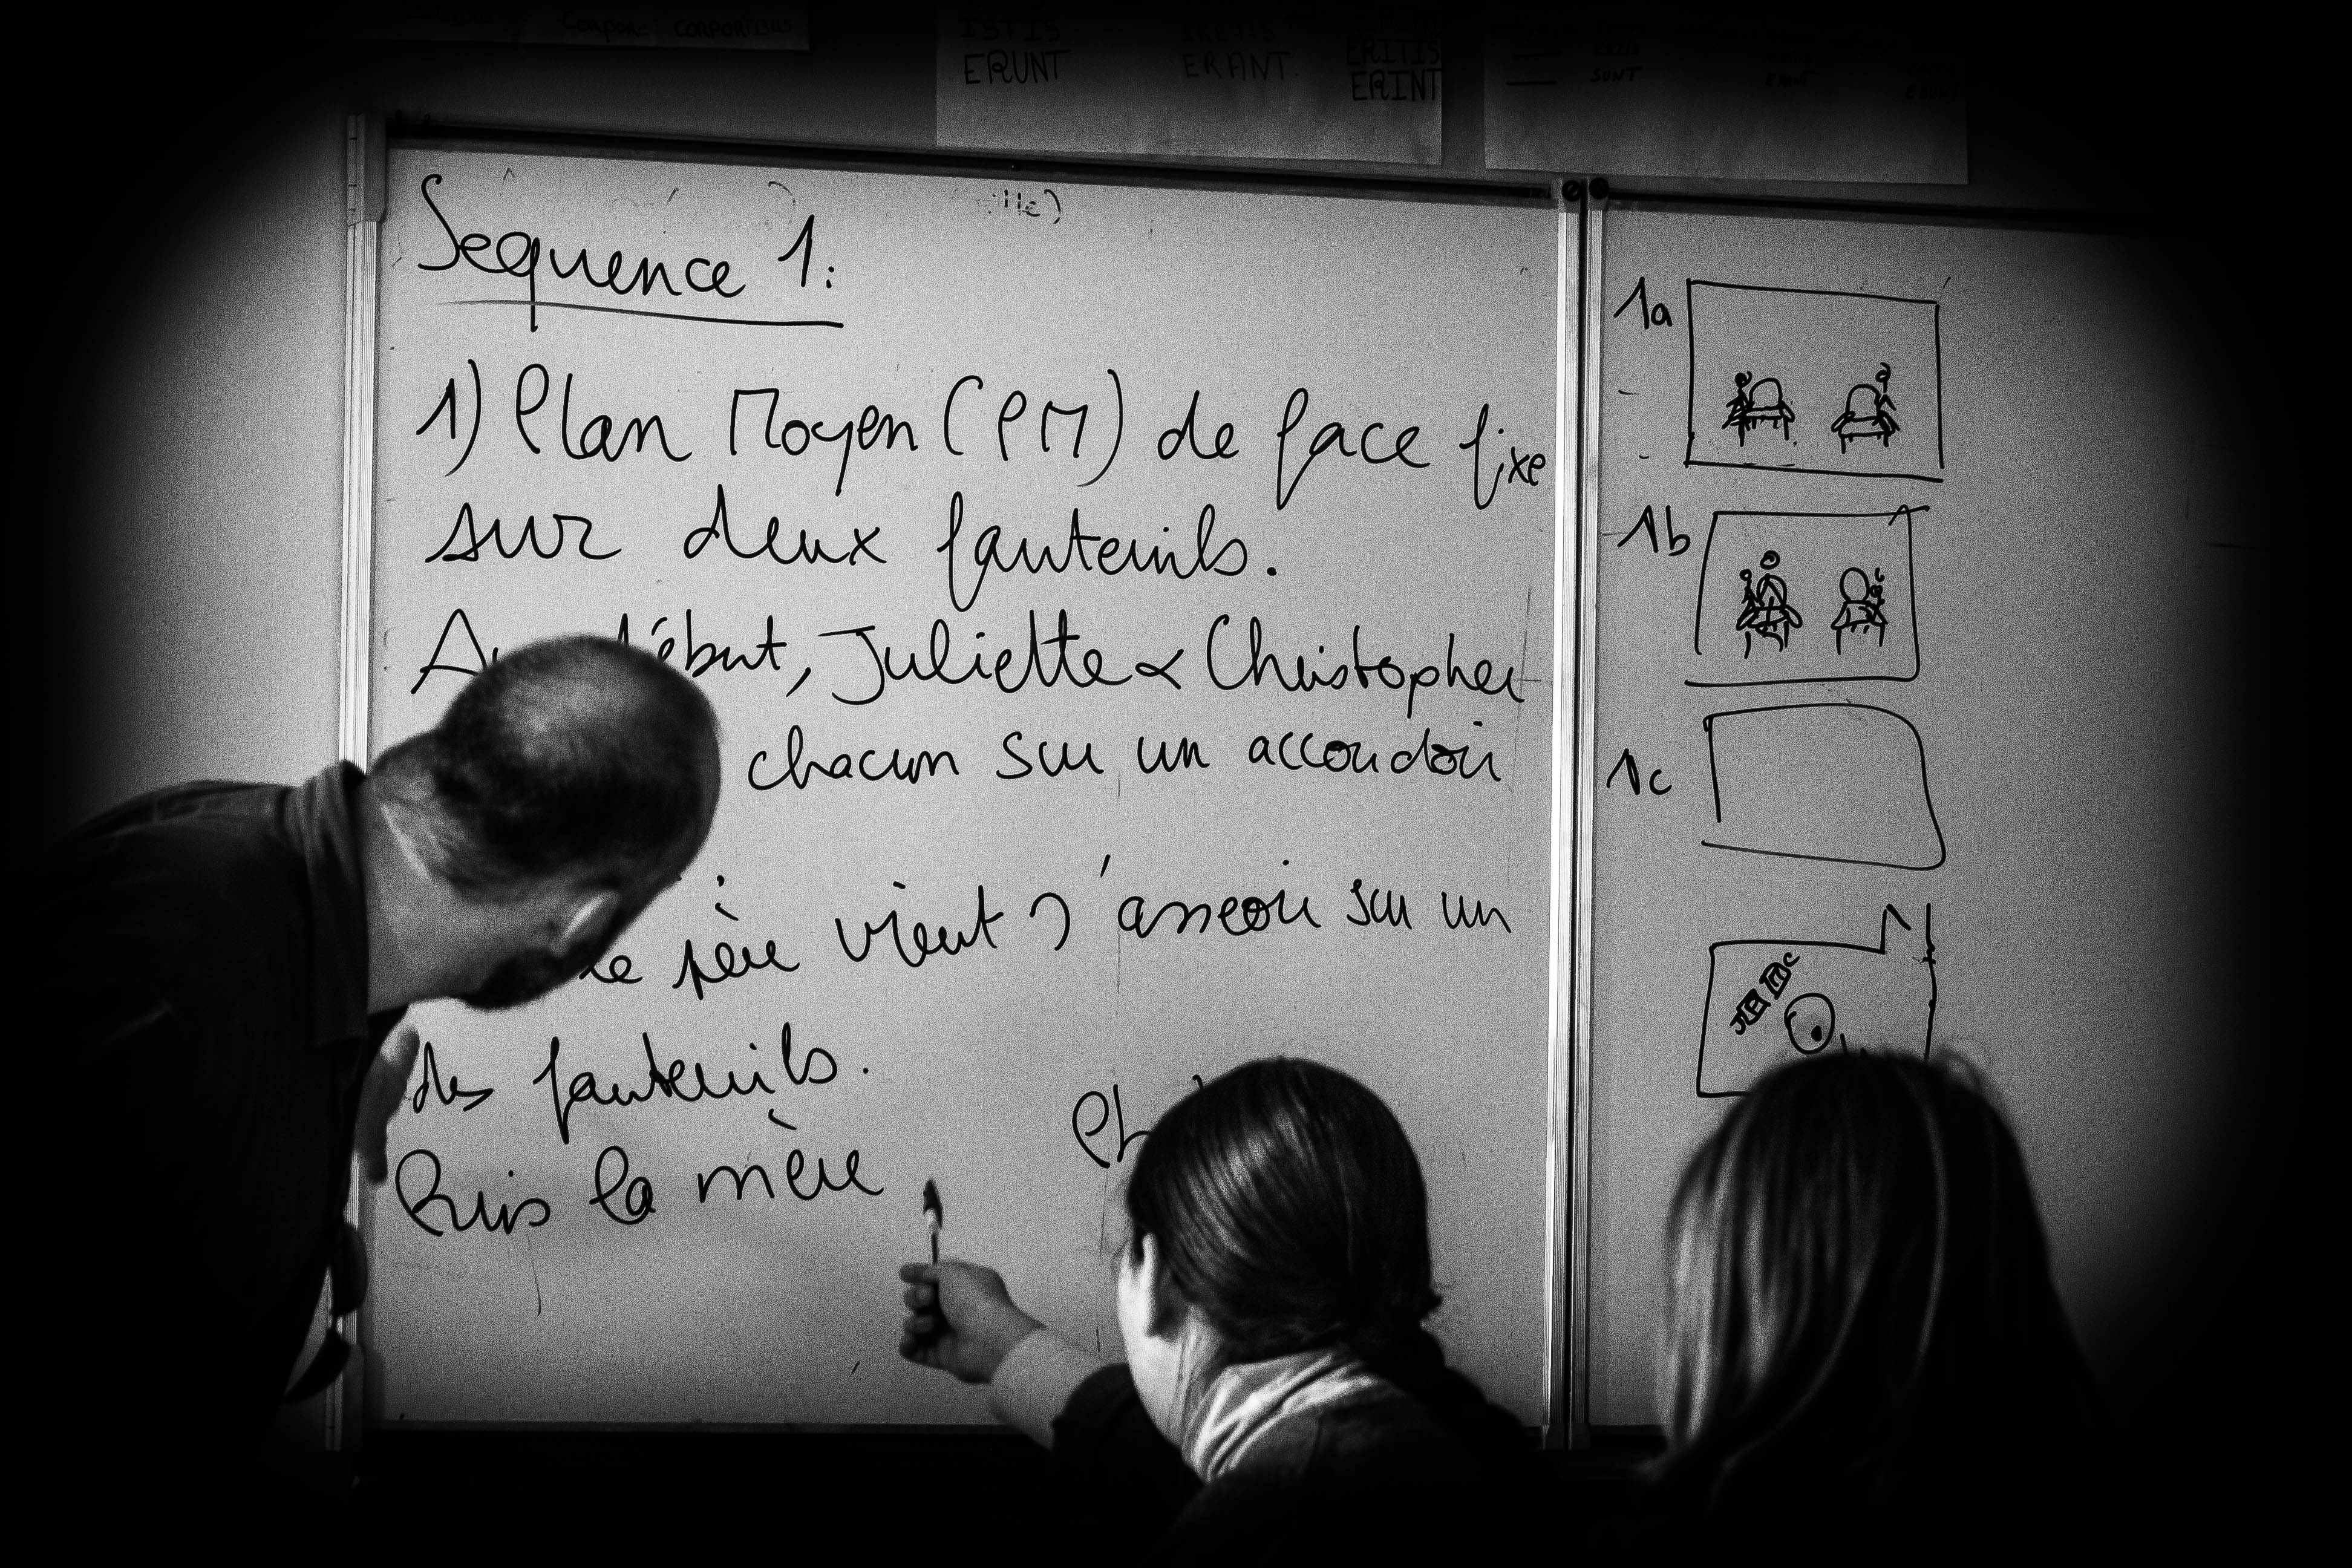 CORPORE CORPORIBUS
ISTIS
ERUNT
ERANT
ERITIS
ERINT
SUNT
Sequence 1:
1) Plan Moyen (PM) de face fixe
sur deux fauteuils.
Au début, Juliette & Christopher
chacun sur un accoudoir
le père vient s'asseoir sur un
des fauteuils.
Puis la mère
1a
1b
1c